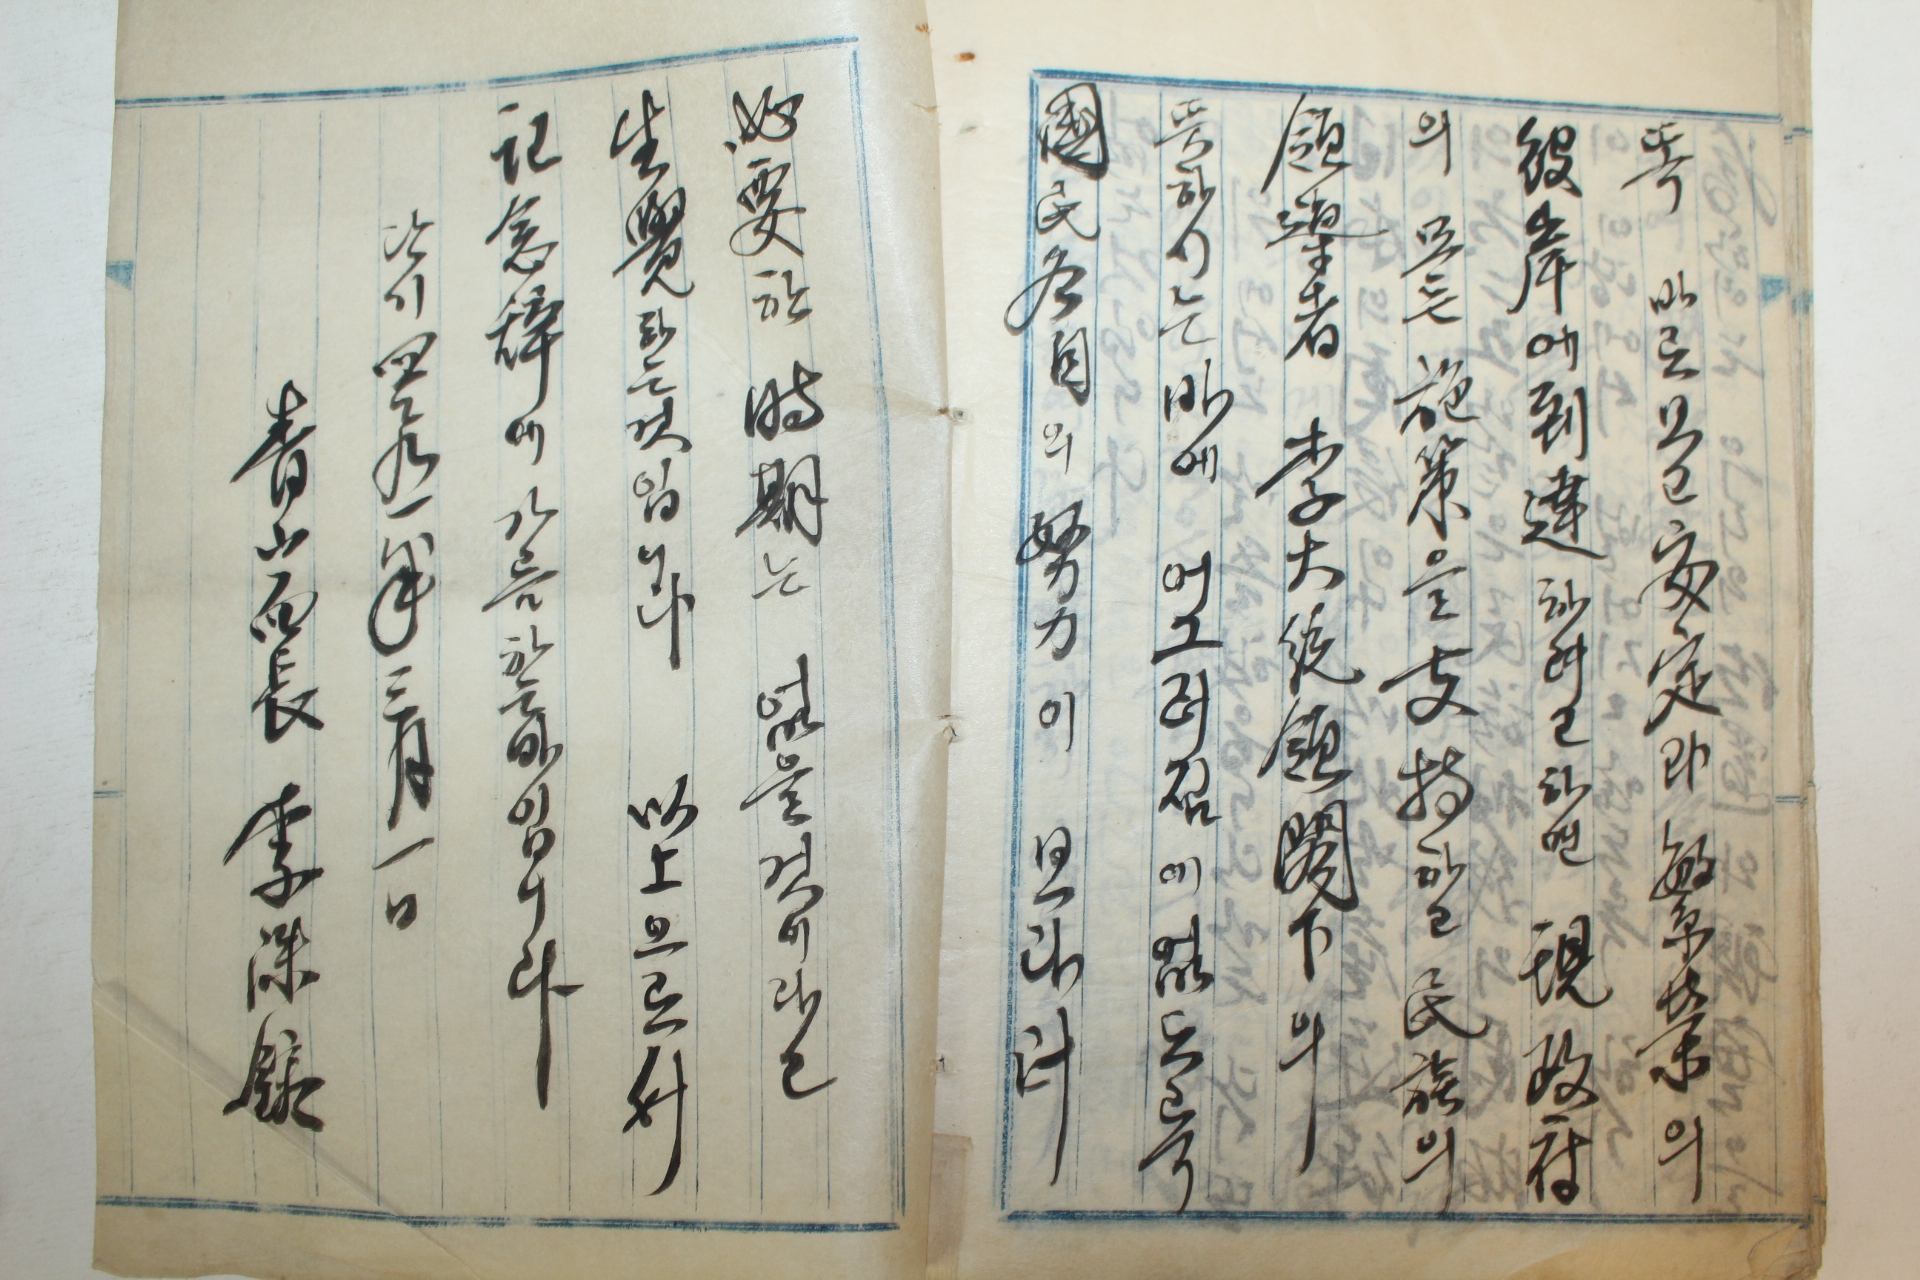 똑 바르고 安定과 繁榮의
彼岸에 到達하려고 하면 現 政府
의 모든 施策을 支持하고 民族의
領導者 李大統領閣下의
뜻하시는 바에 어그러짐이 없도록
國民各自의 努力이 보다 더
必要한 時期는 없을것이라고
生覺하는것입니다 以上으로서
記念辭에 가름하는바입니다
단기 四二八一年 三月 一日
青山面長 李